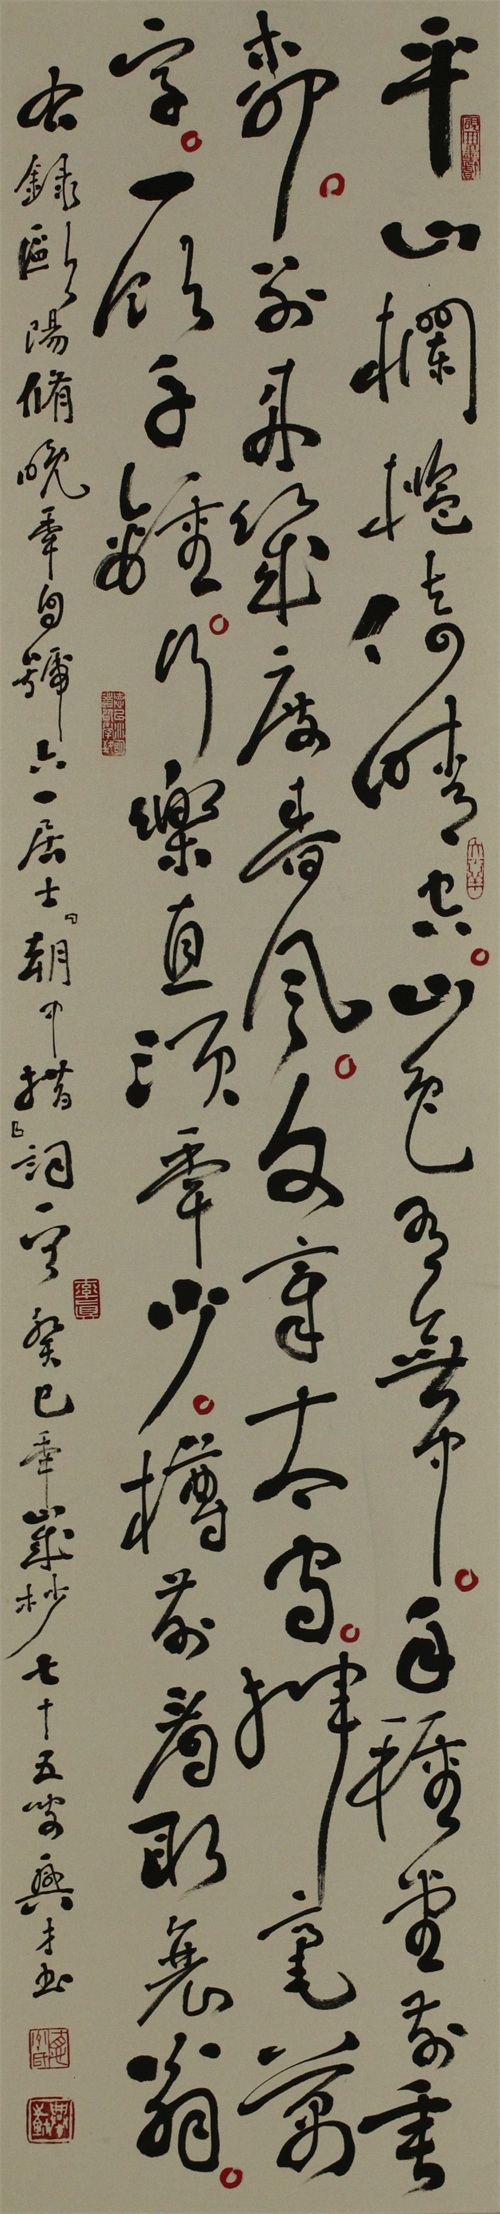 平山欄檻倚晴空。山色有無中。手種堂前垂
柳。別來幾度春風。文章太守。揮毫萬
字。一飲千鍾。行樂直須年少。樽前看取衰翁。
右錄歐陽脩晚年自號六一居士「朝中措」詞一 癸巳年歲杪七十五叟興才書